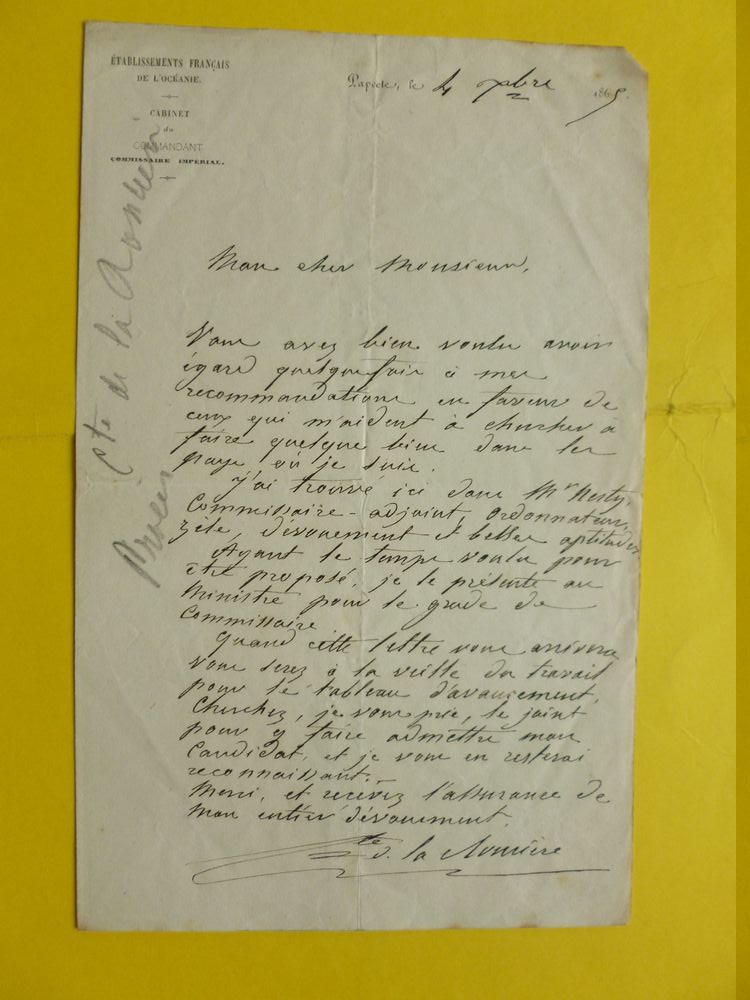 ÉTABLISSEMENTS FRANÇAIS
DE L'OCÉANIE.
CABINET
du
COMMANDANT
COMMISSAIRE IMPÉRIAL.
Papeete, le 4 bre 1865.
Mon cher Monsieur,
Vous avez bien voulu avoir
égard quelquefois à mes
recommandations en faveur de
ceux qui m'aident à chercher à
faire quelque bien dans les
pays où je suis.
J'ai trouvé ici dans Mr
Commissaire-adjoint, ordonnateur,
zèle, dévouement et belles aptitudes.
Ayant le temps voulu pour
être proposé, je le présente au
Ministre pour le grade de
Commissaire.
Quand cette lettre vous arrivera
vous serez à la veille du travail
pour le tableau d'avancement.
Cherchez, je vous prie, le joint
pour y faire admettre mon
Candidat, et je vous en resterai
reconnaissant.
Merci, et recevez l'assurance de
mon entier dévouement.
Cte de la Roncière
Cte de la Roncière